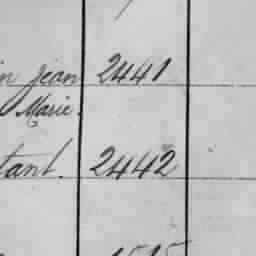 in Jean 2441
Marie.
tant. 2442